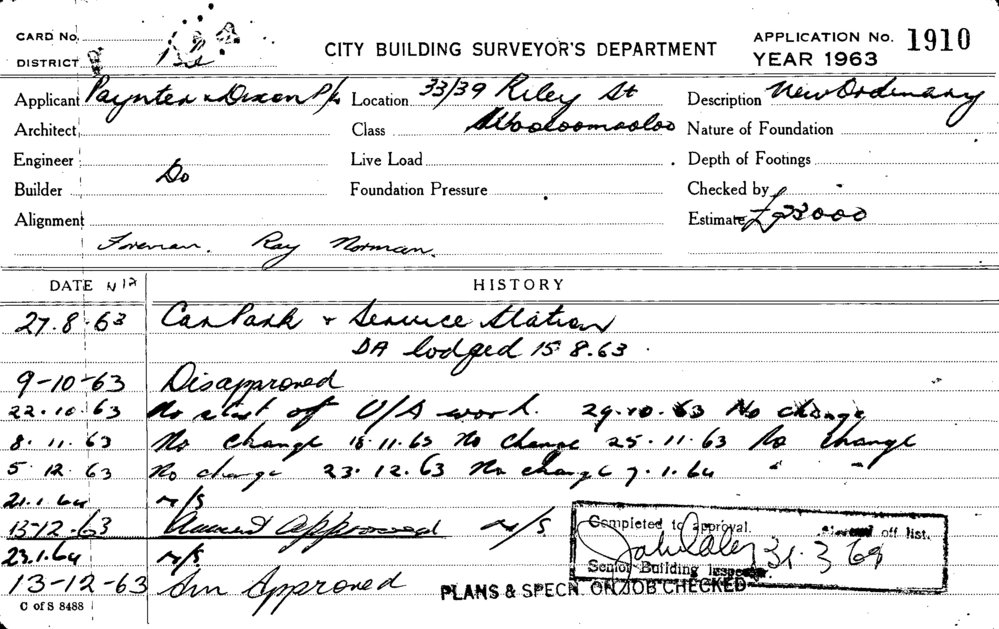 CARD No.
DISTRICT
CITY BUILDING SURVEYOR'S DEPARTMENT
APPLICATION No. 1910
YEAR 1963
Applicant Paynter & Dixon P/L Location 33/39 Riley St Description New Ordinary
Architect Class Woolloomooloo Nature of Foundation
Engineer Live Load Depth of Footings
Builder Do Foundation Pressure Checked by
Alignment Estimate £93000
Foreman. Ray Norman.
DATE HISTORY
27.8.63 Car Park & Service Station
DA lodged 15.8.63.
9-10-63 Disapproved
22.10.63 No start of U/A work. 29.10.63 No change
8.11.63 No change 18.11.63 No change 25.11.63 No change
5.12.63 No change 23.12.63 No change 7.1.64 " "
21.1.64 N/S
13-12-63 Approved N/S.
23.1.64 N/S
13-12-63 Am Approved
Completed to approval. off list.
31.3.69
Senior Building Inspector.
PLANS & SPECN. ON JOB CHECKED
C of S 8488